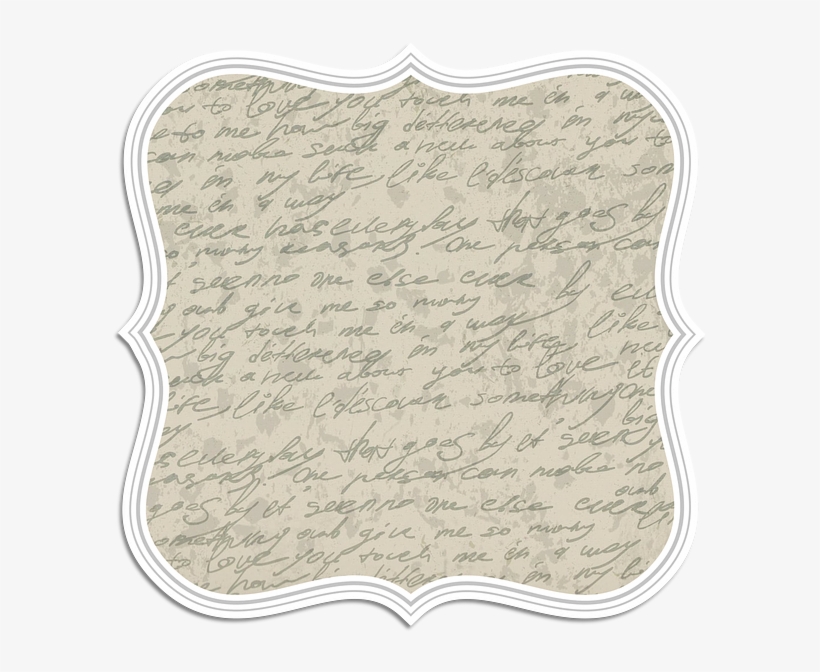 something
to love you touch me in a
to me how big difference in my
can make such a new about you to
in my life, like I discover som
me in a way
ever has everyday that goes by
so many reasons. One person can
t seen no one else ever by
and give me so many
you touch me in a way like
big difference in my life
such a new about you to love
life, like I discover something One
big
everyday that goes by it seen
reasons. One person can make no
goes by it seen no one else ever
something and give me so many
to love you touch me in a way
how big difference in my li